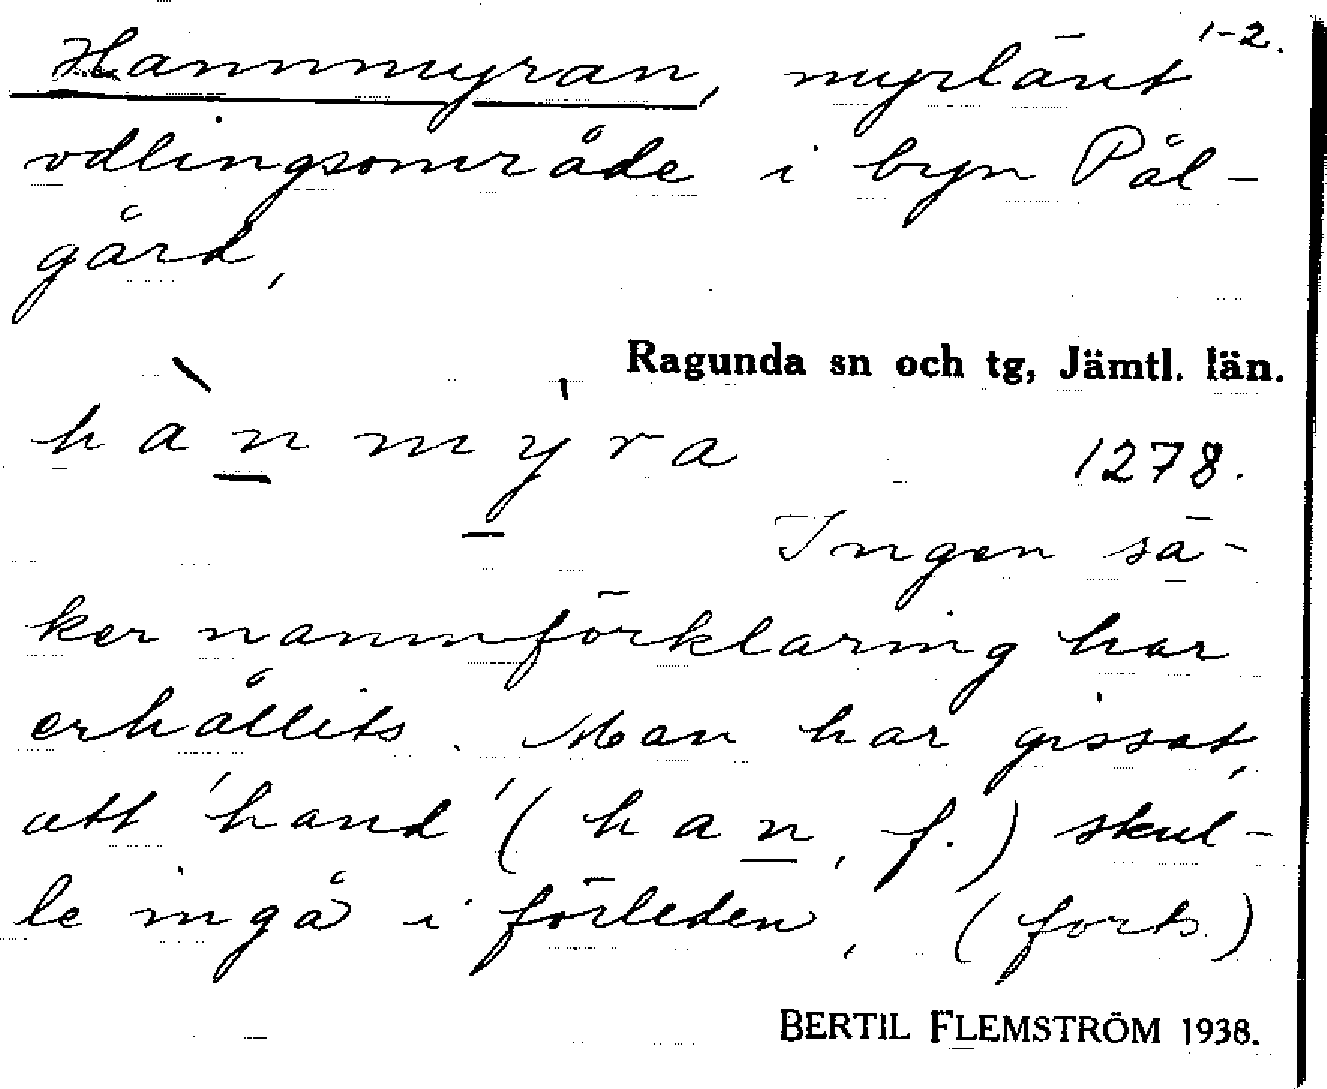 1-2.
Hannmyran, myrlänt
odlingsområde i byn Pål-
gård,
Ragunda sn och tg, Jämtl. län.
hànmy̍ra
1278.
Ingen sä-
ker namnförklaring har
erhållits. Man har gissat,
att 'hand' (han, f.) skul-
le ingå i förleden, (forts.)
BERTIL FLEMSTRÖM 1938.